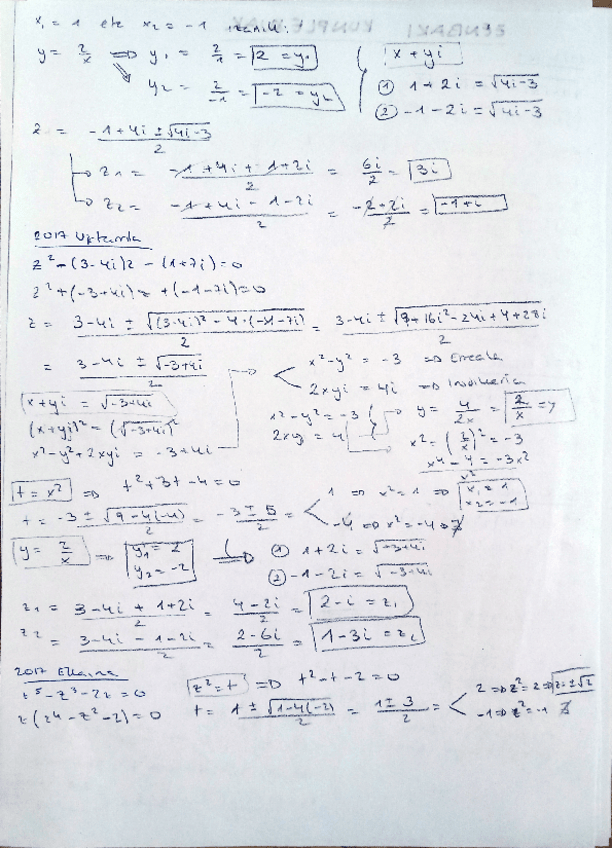 x₁ = 1 etc x₂ = -1 izanik:
y = 2/x ⇒ y₁ = 2/1 = 2 = y₁
y₂ = 2/-1 = -2 = y₂
x + yi
① 1 + 2i = √4i-3
② -1 - 2i = √4i-3
z = (-1+4i ± √4i-3)/2
z₁ = (-1+4i + 1+2i)/2 = 6i/2 = 3i
z₂ = (-1+4i - 1-2i)/2 = (-2+2i)/2 = -1+i
2017 Uztaila
z² - (3-4i)z - (1+7i) = 0
z² + (-3+4i)z + (-1-7i) = 0
z = (3-4i ± √(3-4i)² - 4·(-1-7i))/2 = (3-4i ± √9+16i²-24i+4+28i)/2
= (3-4i ± √-3+4i)/2
x² - y² = -3 ⇒ Erreala
2xyi = 4i ⇒ Irudikaria
x+yi = √-3+4i
(x+yi)² = (√-3+4i)²
x² - y² + 2xyi = -3+4i
x² - y² = -3
2xy = 4
y = 4/2x = 2/x = y
x² - (2/x)² = -3
x⁴ - 4 = -3x²
x²
t = x² ⇒ t² + 3t - 4 = 0
t = (-3 ± √9-4(-4))/2 = (-3 ± 5)/2 =
1 ⇒ x² = 1 ⇒ x₁ = 1
x₂ = -1
-4 ⇒ x² = -4 ⇒ ∄
y = 2/x ⇒ y₁ = 2
y₂ = -2
① 1+2i = √-3+4i
② -1-2i = √-3+4i
z₁ = (3-4i + 1+2i)/2 = (4-2i)/2 = 2-i = z₁
z₂ = (3-4i - 1-2i)/2 = (2-6i)/2 = 1-3i = z₂
2017 Ekaina
z⁵ - z³ - 2z = 0
z(z⁴ - z² - 2) = 0
z² = t ⇒ t² - t - 2 = 0
t = (1 ± √1-4(-2))/2 = (1 ± 3)/2 =
2 ⇒ z² = 2 ⇒ z = ±√2
-1 ⇒ z² = -1 ∄